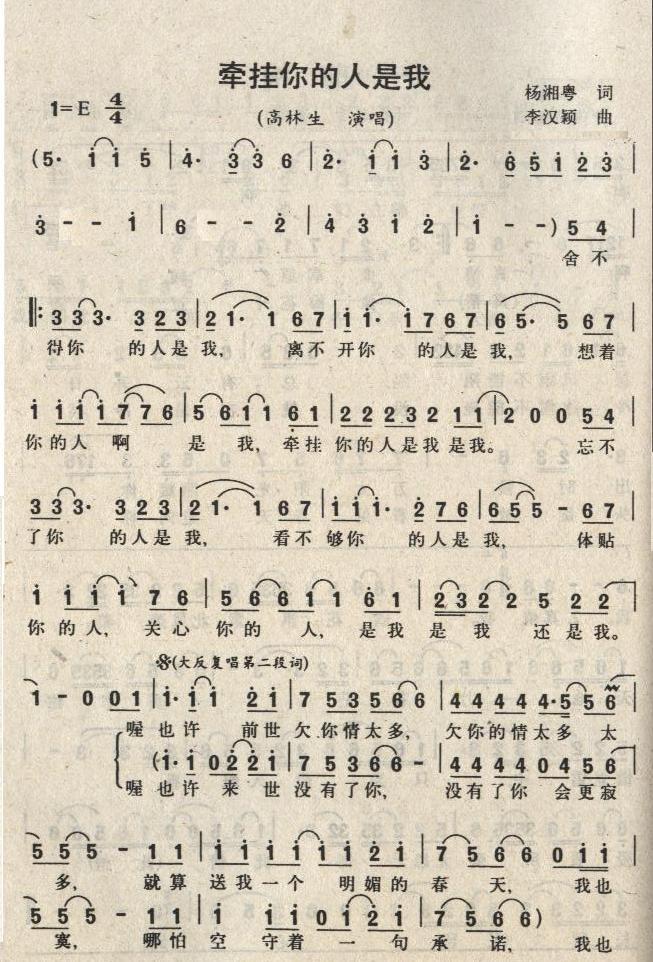 牵挂你的人是我
1=E 4/4
(高林生 演唱)
杨湘粤 词
李汉颖 曲
(5· i i 5 | 4· 3 3 6 | 2· i i 3 | 2· 6 5 i 2 3 |
3 - - i | 6 - - 2 | 4 3 i 2 | i - -) 5 4 |
舍不
‖: 3 3 3· 3 2 3 | 2 1· 1 6 7 | i i· i 7 6 7 | 6 5· 5 6 7 |
得你 的人是我, 离不开你 的人是我, 想着
i i i i 7 7 6 | 5 6 1 1 6 1 | 2 2 2 3 2 1 1 | 2 0 0 5 4 |
你的人 啊 是 我, 牵挂 你的人是我是我。 忘不
3 3 3· 3 2 3 | 2 1· 1 6 7 | i i i· 2 7 6 | 6 5 5 - 6 7 |
了你 的人是我, 看不够你 的人是我, 体贴
i i i i 7 6 | 5 6 6 1 1 6 1 | 2 3 2 2 5 2 2 |
你的人, 关心 你的 人, 是我 是 我 还是我。
𝄋(大反复唱第二段词)
1 - 0 0 1 | i· i i 2 i | 7 5 3 5 6 6 | 4 4 4 4 4· 5 5 6 |
喔也许 前世欠你情太多, 欠你的情太多 太
(i· i 0 2 2 i | 7 5 3 6 6 - | 4 4 4 4 0 4 5 6 |
喔也许 来 世没有了你, 没有了你 会更寂
5 5 5 - 1 1 | i i i i i i 2 i | 7 5 6 6 0 i i |
多, 就算 送我一个 明媚的 春 天, 我也
5 5 5 - 1 1 | i i i 0 i 2 i | 7 5 6 6)
寞, 哪怕 空 守着 一 句 承 诺, 我也